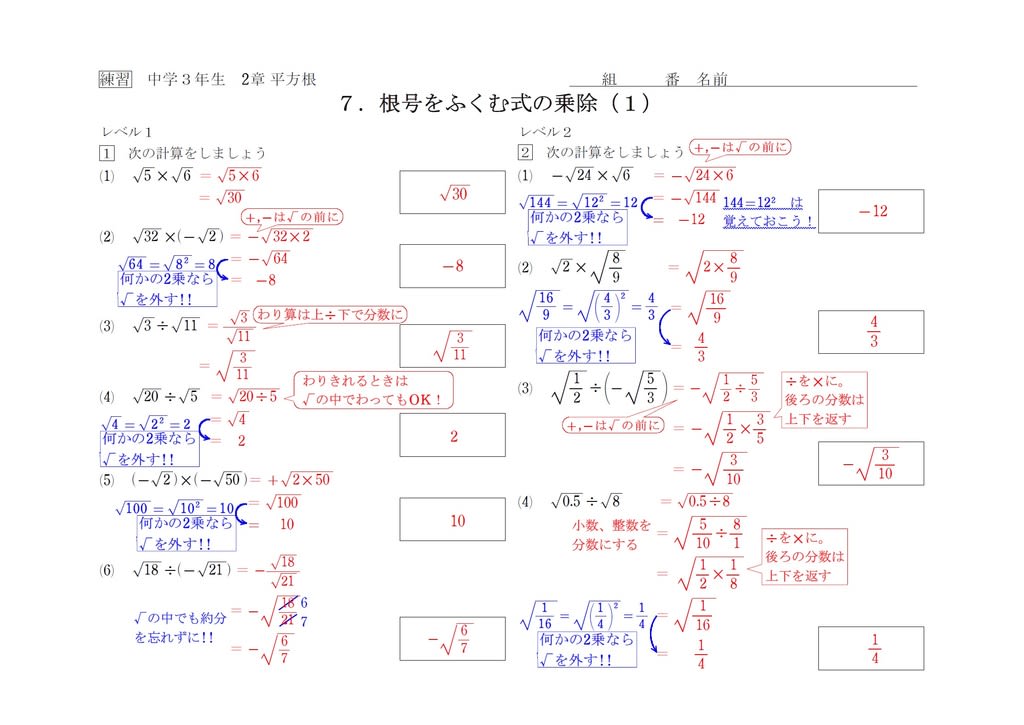 練習 中学3年生 2章 平方根 組 番 名前
7.根号をふくむ式の乗除(1)
レベル1
1 次の計算をしましょう
(1) √5 × √6 = √(5×6)
= √30
√30
+,−は√の前に
(2) √32 ×(−√2) = −√(32×2)
√64 = √(8²) = 8
= −√64
何かの2乗なら
√を外す!!
= −8
−8
(3) √3 ÷ √11 = √3/√11
わり算は上÷下で分数に
= √(3/11)
√(3/11)
(4) √20 ÷ √5 = √(20÷5)
わりきれるときは
√の中でわってもOK!
√4 = √(2²) = 2
= √4
何かの2乗なら
√を外す!!
= 2
2
(5) (−√2)×(−√50) = +√(2×50)
√100 = √(10²) = 10
= √100
何かの2乗なら
√を外す!!
= 10
10
(6) √18 ÷(−√21) = −√18/√21
√の中でも約分
を忘れずに!!
= −√(18/21) 6 7
= −√(6/7)
−√(6/7)
レベル2
2 次の計算をしましょう
+,−は√の前に
(1) −√24 × √6 = −√(24×6)
√144 = √(12²) = 12
= −√144
144=12² は
覚えておこう!
何かの2乗なら
√を外す!!
= −12
−12
(2) √2 × √(8/9) = √(2×8/9)
√(16/9) = √((4/3)²) = 4/3
= √(16/9)
何かの2乗なら
√を外す!!
= 4/3
4/3
(3) √(1/2) ÷ (−√(5/3)) = −√(1/2 ÷ 5/3)
÷を×に。
後ろの分数は
上下を返す
+,−は√の前に
= −√(1/2 × 3/5)
= −√(3/10)
−√(3/10)
(4) √0.5 ÷ √8 = √(0.5÷8)
小数、整数を
分数にする
= √(5/10 ÷ 8/1)
÷を×に。
後ろの分数は
上下を返す
= √(1/2 × 1/8)
√(1/16) = √((1/4)²) = 1/4
= √(1/16)
何かの2乗なら
√を外す!!
= 1/4
1/4